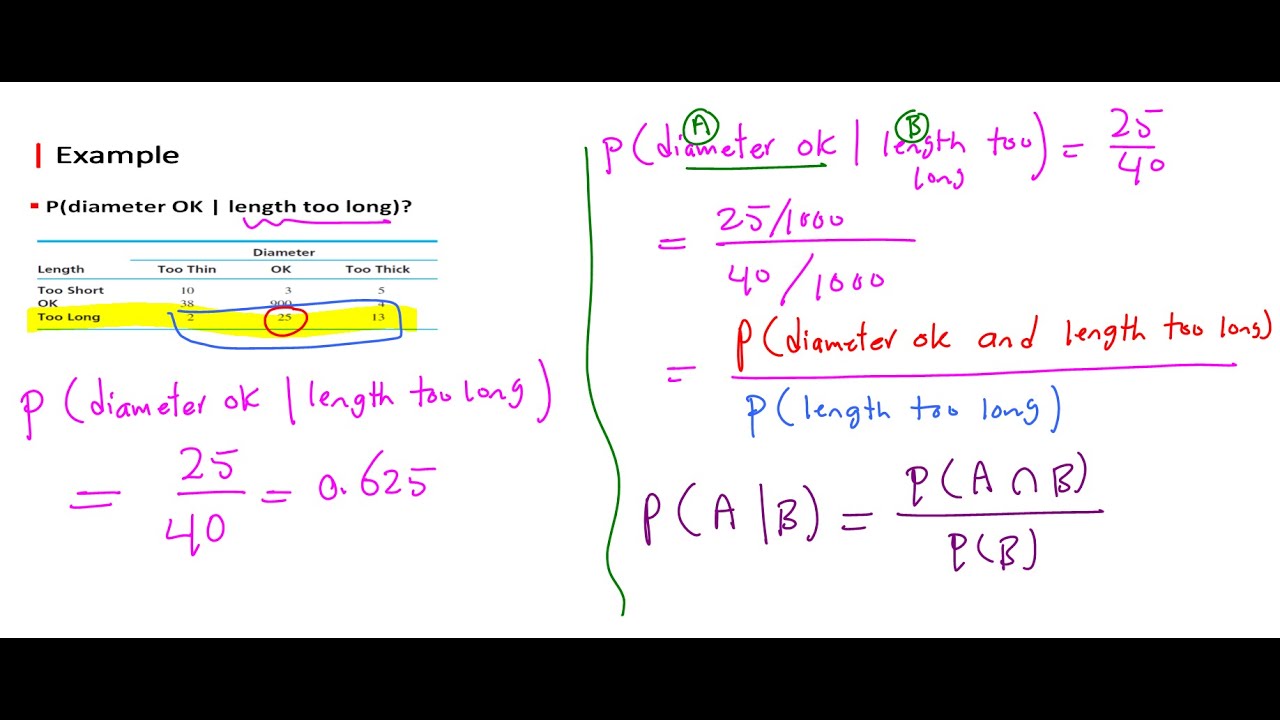 Example
P(diameter OK | length too long)?
Diameter
Length Too Thin OK Too Thick
Too Short 10 3 5
OK 38 900 4
Too Long 2 25 13
P (diameter ok | length too long)
= 25/40 = 0.625
A B
P(diameter ok | length too long) = 25/40
= 25/1000
40/1000
= P(diameter ok and length too long)
P(length too long)
P(A|B) = P(A ∩ B)
P(B)